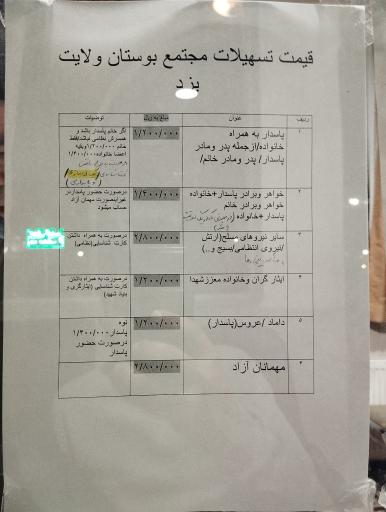 قیمت تسهیلات مجتمع بوستان ولایت
یزد
ردیف
عنوان
مبلغ به ریال
توضیحات
۱
پاسدار به همراه
خانواده/ازجمله پدر ومادر
پاسدار/ پدر ومادر خانم/
۱/۲۰۰/۰۰۰
اگر خانم پاسدار باشد و
همسرش نظامی نباشد/فقط
خانم ۱/۲۰۰/۰۰۰وبقیه
اعضا خانواده۱/۳۰۰/۰۰۰
۲
خواهر وبرادر پاسدار+خانواده
خواهر وبرادر خانم
پاسدار+خانواده
۱/۳۰۰/۰۰۰
درصورت حضور پاسدار،در
غیراینصورت مهمان آزاد
حساب میشود
۳
سایر نیروهای مسلح(ارتش
/نیروی انتظامی/بسیج و..)
۲/۸۰۰/۰۰۰
درصورت به همراه داشتن
کارت شناسایی(نظامی)
۴
ایثار گران وخانواده معززشهدا
۱/۲۰۰/۰۰۰
درصورت به همراه داشتن
کارت شناسایی (ایثارگری و
بنیاد شهید)
۵
داماد /عروس(پاسدار)
۱/۲۰۰/۰۰۰
نوه
پاسدار۱/۳۰۰/۰۰۰
درصورت حضور
پاسدار
۶
مهمانان آزاد
۲/۸۰۰/۰۰۰